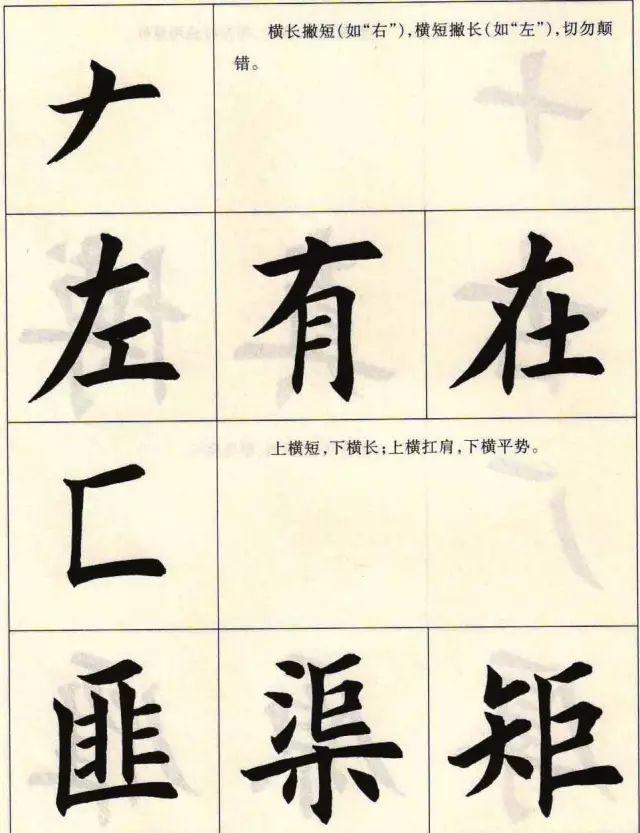 𠂇
横长撇短(如“右”),横短撇长(如“左”),切勿颠
错。
左 有 在
匚
上横短,下横长;上横扛肩,下横平势。
匪 渠 矩